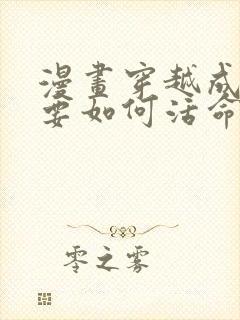 漫畫穿越成
要如何活命
零之雾